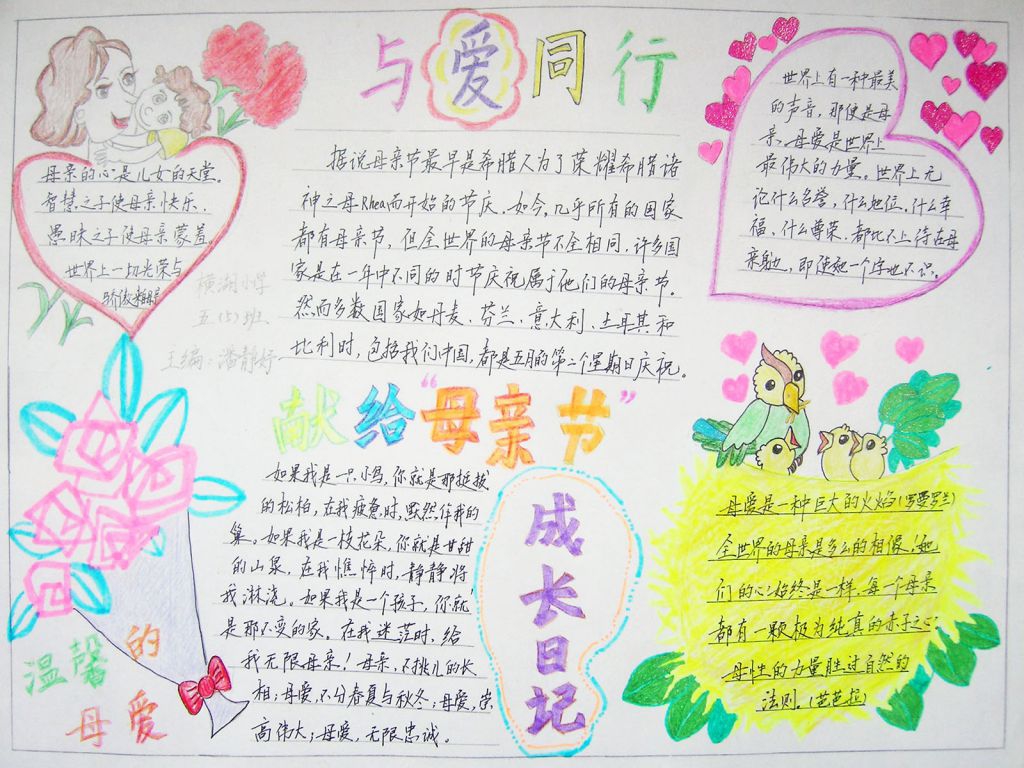 与爱同行
据说母亲节最早是希腊人为了荣耀希腊诸
神之母Rhea而开始的节庆.如今,几乎所有的国家
都有母亲节,但全世界的母亲节不全相同,许多国
家是在一年中不同的时节庆祝属于他们的母亲节。
然而多数国家如丹麦、芬兰、意大利、土耳其和
比利时,包括我们中国,都是五月的第二个星期日庆祝。
母亲的心是儿女的天堂.
智慧之子使母亲快乐、
愚昧之子使母亲蒙羞.
世界上一切光荣与
骄傲
横湖小学
五(5)班
主编:潘静妤
世界上有一种最美
的声音,那便是母
亲。母爱是世界上
最伟大的力量。世界上无
论什么名誉,什么地位,什么幸
福,什么尊荣,都比不上待在母
亲身边,即使她一个字也不识。
献给“母亲节”
如果我是一只小鸟,你就是那挺拔
的松柏,在我疲惫时,默然作我的
巢。如果我是一枝花朵,你就是甘甜
的山泉,在我憔悴时,静静将
我淋浇。如果我是一个孩子,你就
是那不变的家。在我迷茫时,给
我无限母亲!母亲,不挑儿的长
相;母爱,不分春夏与秋冬;母爱,崇
高伟大;母爱,无限忠诚。
成长日记
母爱是一种巨大的火焰(罗曼罗兰)
全世界的母亲是多么的相像!她
们的心始终是一样,每一个母亲
都有一颗极为纯真的赤子之心
母性的力量胜过自然的
法则。(芭芭拉)
温馨的
母爱